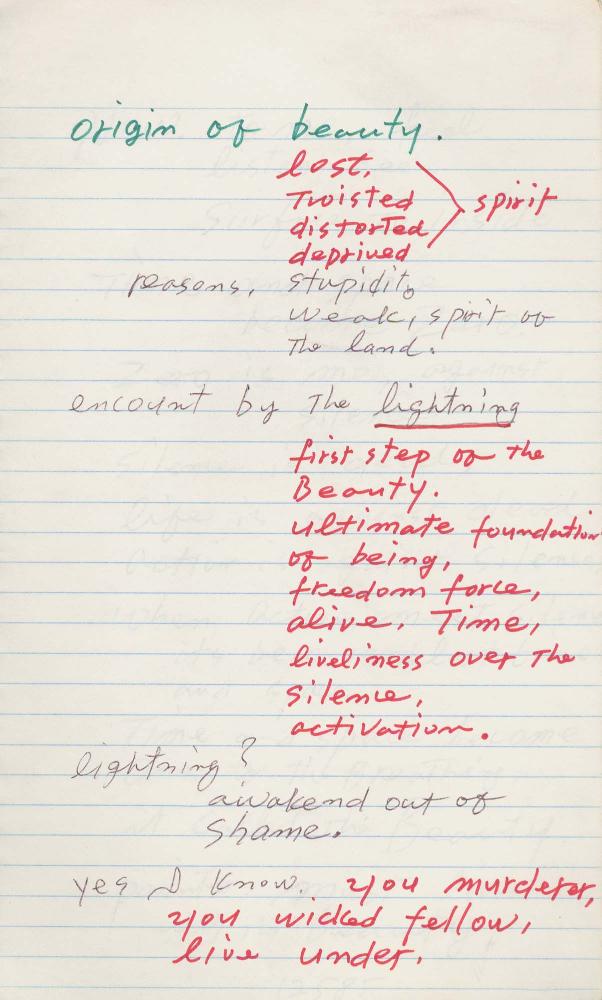 origin of beauty.
lost,
Twisted
distorted spirit
deprived
reasons, stupidity
weak, spirit of
The land.
encount by The lightning
first step of the
Beauty.
ultimate foundation
of being,
freedom force,
alive, Time,
liveliness over The
silence,
activation.
lightning?
awakend out of
shame.
yes I know. you murderer,
you wicked fellow,
live under,